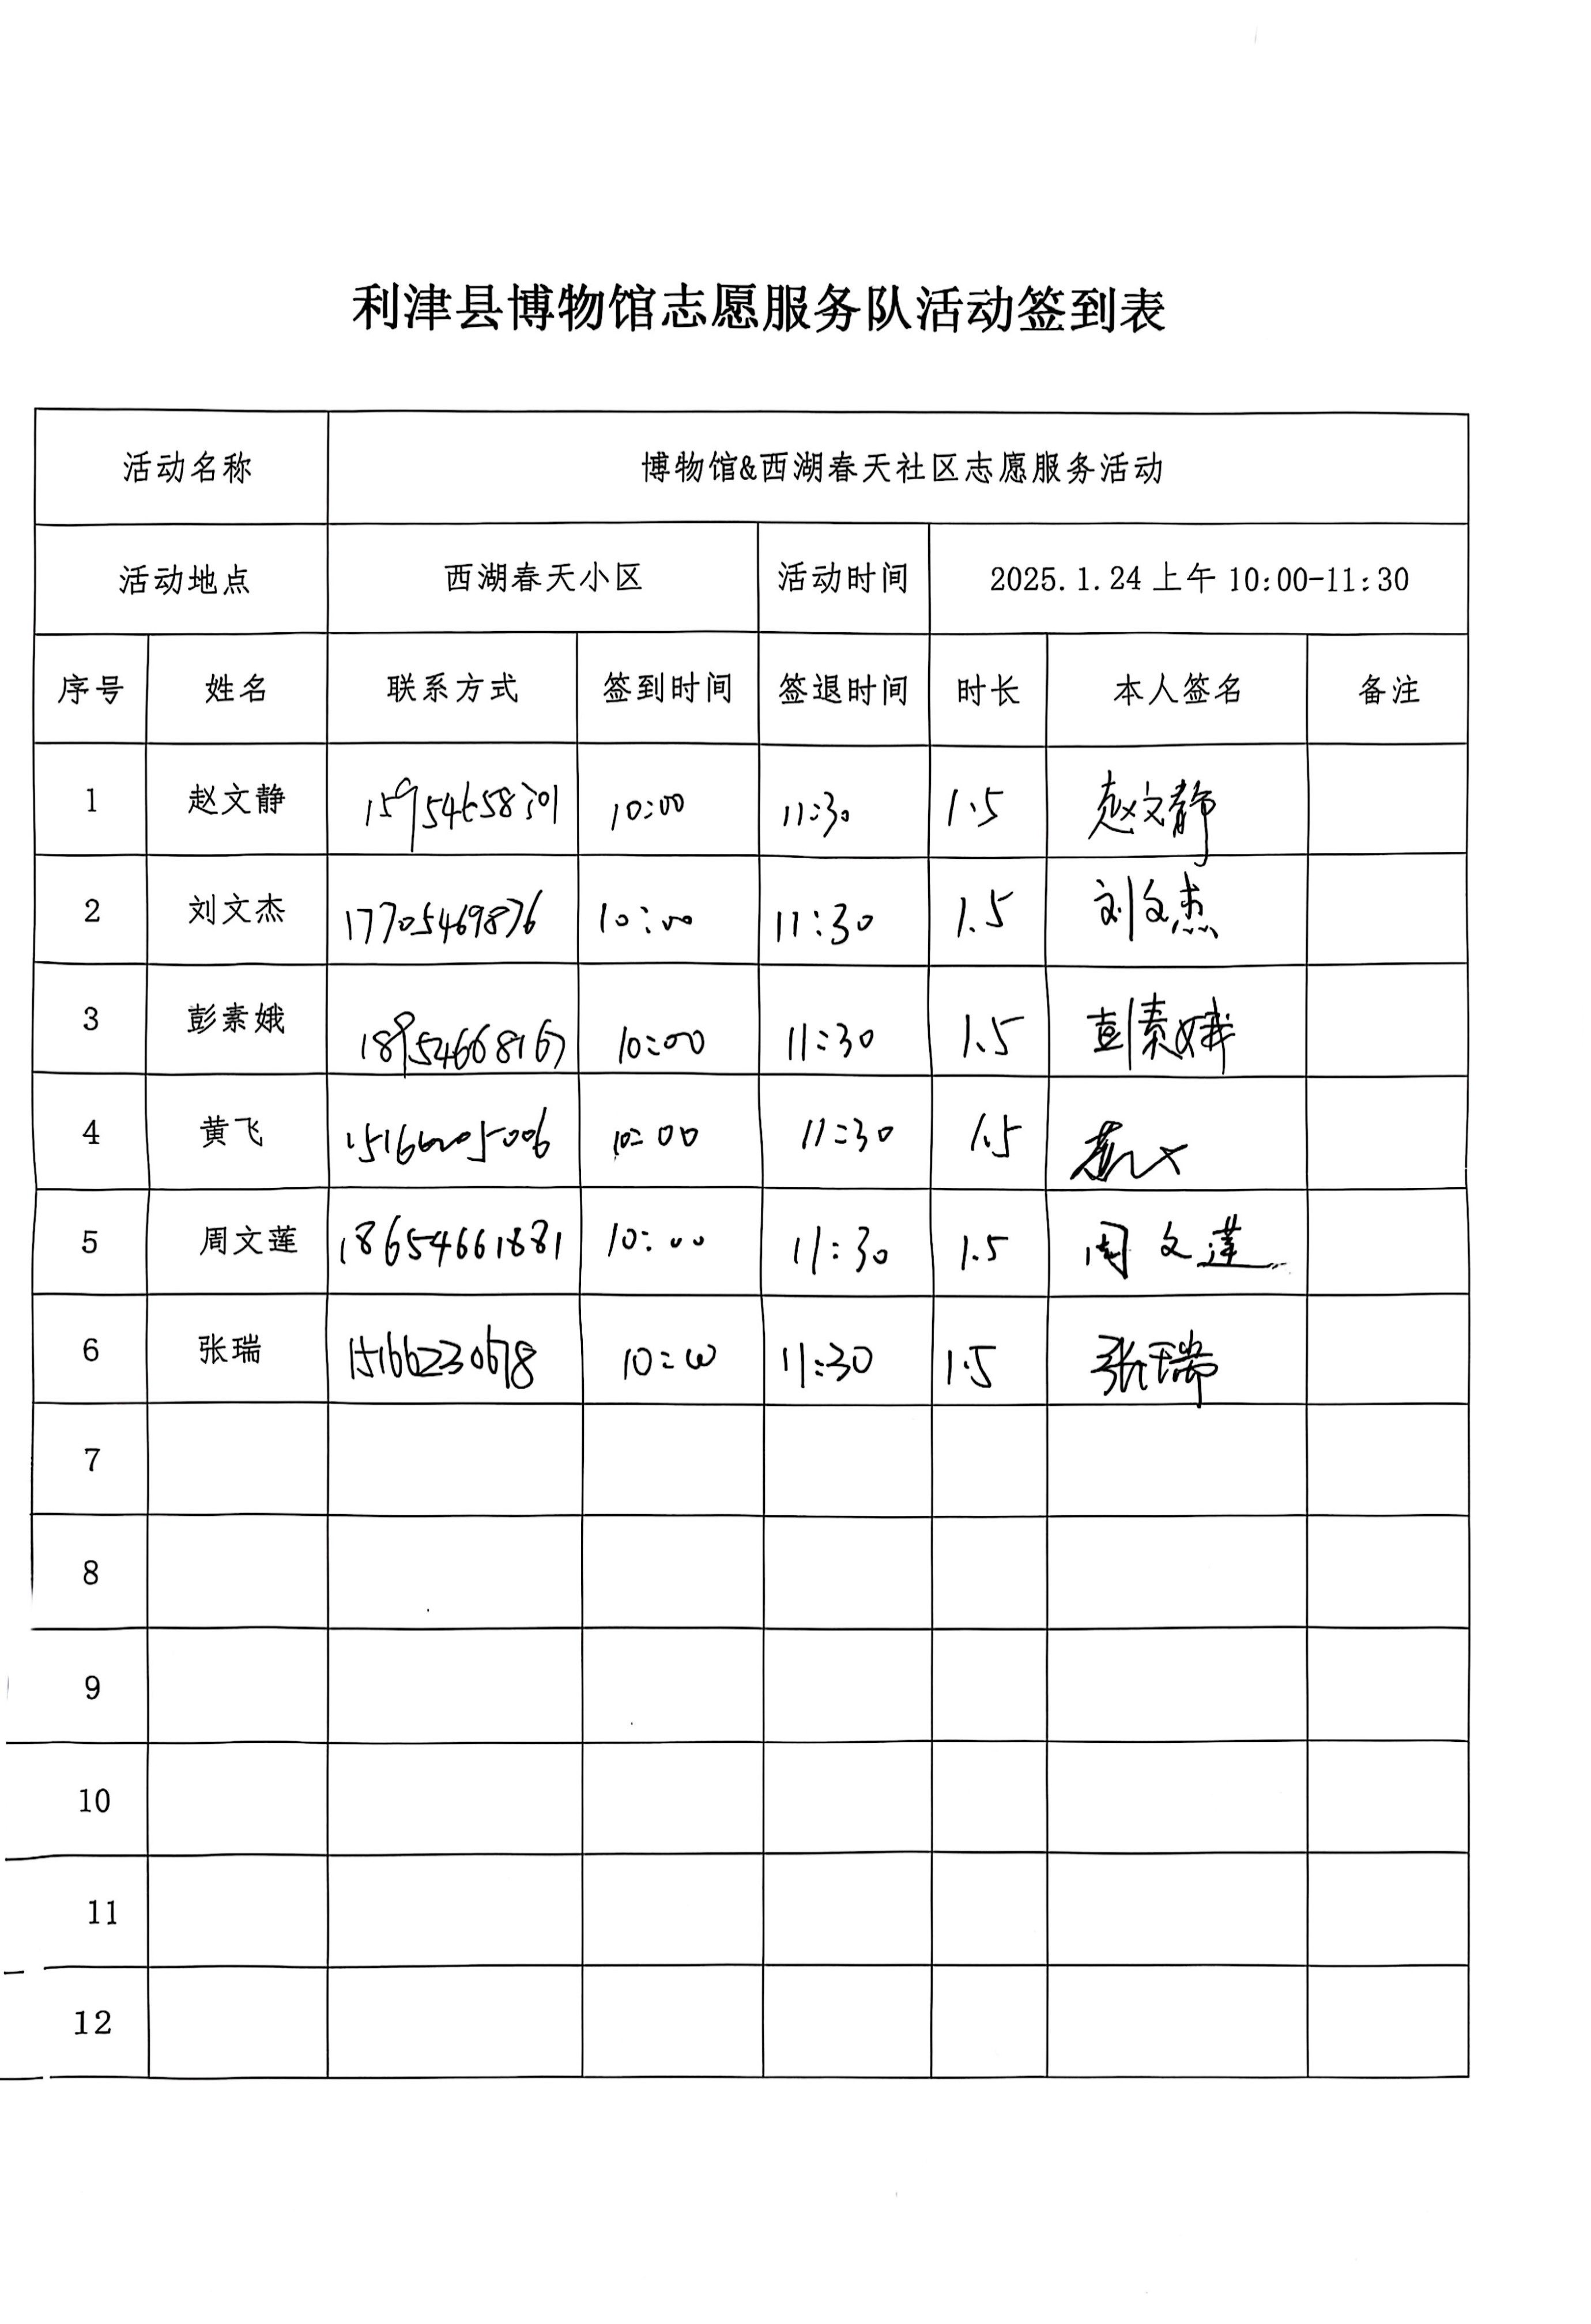 利津县博物馆志愿服务队活动签到表
活动名称 博物馆&西湖春天社区志愿服务活动
活动地点 西湖春天小区 活动时间 2025.1.24 上午 10:00-11:30
序号 姓名 联系方式 签到时间 签退时间 时长 本人签名 备注
1 赵文静 10:00 11:30 1.5 赵文静
2 刘文杰 17705469876 10:00 11:30 1.5 刘文杰
3 彭素娥 18954668167 10:00 11:30 1.5 彭素娥
4 黄飞 10:00 11:30 1.5
5 周文莲 18654661881 10:00 11:30 1.5 周文莲
6 张瑞 15166230678 10:00 11:30 1.5 张瑞
7
8
9
10
11
12